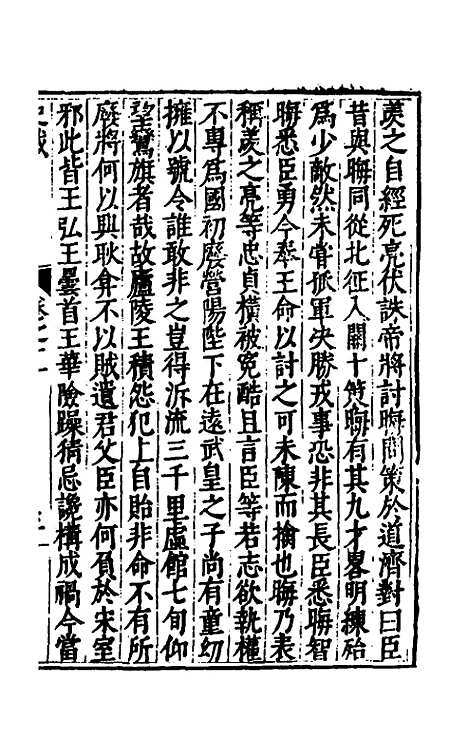 羡之自經死亮伏誅帝將討晦問策於道濟對曰臣
昔與晦同從北征入關十策晦有其九才畧明揀殆
爲少敵然未嘗孤軍决勝戎事恐非其長臣悉晦智
晦悉臣勇今奉王命以討之可未陳而擒也晦乃表
稱羡之亮等忠貞橫被冤酷且言臣等若志欲執權
不專爲國初廢營陽陛下在遠武皇之子尚有童幼
擁以號令誰敢非之豈得泝流三千里虛館七旬仰
望鸞旗者哉故廬陵王積怨犯上自貽非命不有所
廢將何以興耿弇不以賊遺君父臣亦何負於宋室
邪此皆王弘王曇首王華險躁猜忌讒構成禍今當